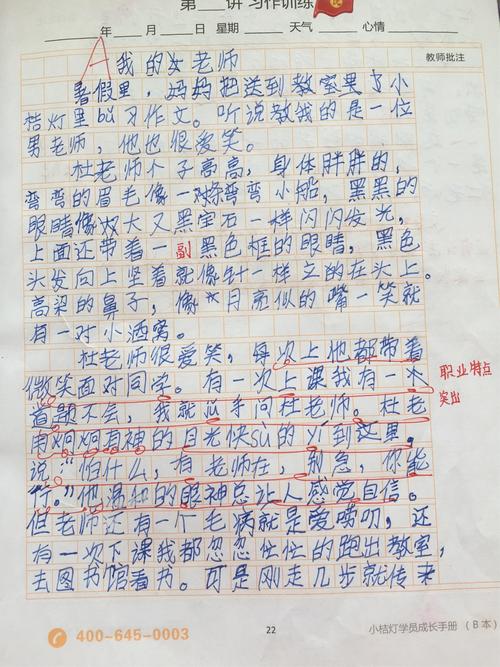 第 讲 习作训练
年 月 日 星期 天气 心情
A
我的女老师
教师批注
暑假里，妈妈把送到教室里了小
桔灯里bù习作文。听说教我的是一位
男老师，他也很爱笑。
杜老师个子高高，身体胖胖的，
弯弯的眉毛像一对条弯弯小船，黑黑的
眼睛像双大又黑宝石一样闪闪发光，
上面还带着一副黑色框的眼睛，黑色
头发向上坚着就像针一样立的在头上。
高梁的鼻子，像 月亮似的嘴一笑就
有一对小酒窝。
杜老师很爱笑，每次上他都带着
微笑面对同学。有一次上课我有一个
道题不会，我就 手问杜老师。杜老
用炯炯有神的目光快sù的 到这里。
说“怕什么，有老师在，别急，你能
行。”他温和的眼神总让人感觉自信。
职业特点
突出
但老师还有一个毛病就是爱唠叨，还
有一次下课我都忽忽忙忙的跑出教室，
去图书馆看书。可是刚走几步就传来
400-645-0003
22
小桔灯学员成长手册（B本）